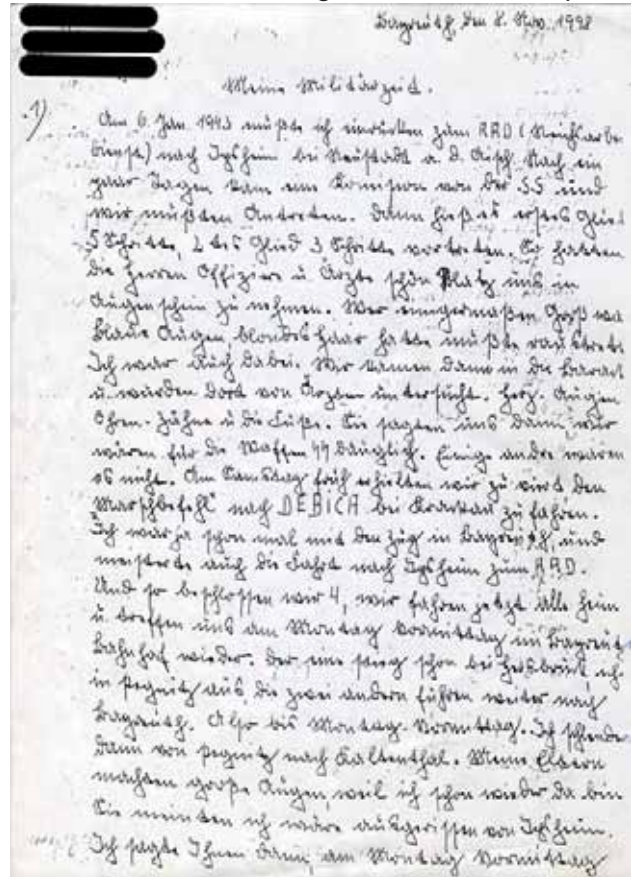 Bayreuth, den 8. Nov. 1998
Meine Militärzeit.
1)
Am 6. Jan. 1943 müßte ich einrücken zum RAD (Reichsarbe
dienste) nach Ipsheim bei Neustadt a. d. Aisch. Nach ein
paar Tagen kam eine Komision von der SS und
wir mußten Antreten. Dann hieß es erstes Glied
5 Schritte, 2tes Glied 3 Schritte vortreten. So hatten
die Herren Offiziere u. Ärzte schön Platz uns in
Augenschein zu nehmen. Wer einigermaßen Groß wa
Blaue Augen, blondes Haar hatte mußte raustrete
Ich war auch dabei. Wir kamen dann in die Barack
u. wurden dort von Ärzten untersucht. Herz. Augen
Ohren-Zähne u die Füße. Sie sagten uns dann, wir
wären für die Waffen SS Dauglich. Einige andre waren
es nicht. Am Samstag früh erhielten wir zu viert den
Marschbefehl nach DEBICA bei Krakau zu fahren.
Ich war ja schon mal mit den Zug in Bayreuth, und
meisterte auch die Fahrt nach Ipsheim zum RAD.
Und so beschlossen wir 4, wir fahren jetzt alle heim
u. treffen uns am Montag Vormittag im Bayreut
Bahnhof wieder. Der eine stieg schon bei Hersbruck, ich
in Pegnitz aus, die zwei andern führen weiter nach
Bayreuth. Also bis Montag-Vormittag. Ich
dann von Pegnitz nach Kaltenthal. Meine Eltern
machten große Augen, weil ich schon wieder da bin
Sie meinten ich wäre ausgerissen von Ipsheim.
Ich sagte Ihnen dann, am Montag Vormittag